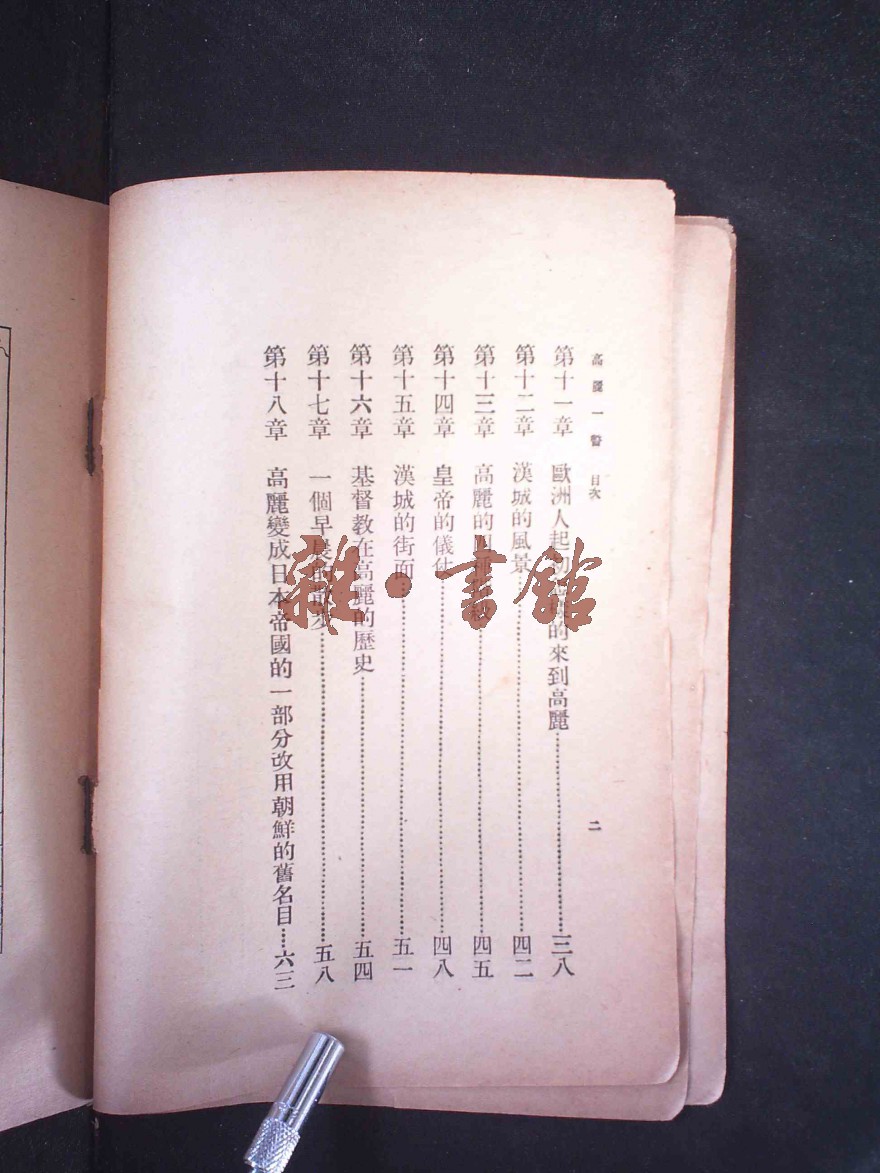 高麗一瞥 目次 二
第十一章 歐洲人起初的來到高麗……三八
第十二章 漢城的風景……四二
第十三章 高麗的四種……四五
第十四章 皇帝的儀仗……四八
第十五章 漢城的街面……五一
第十六章 基督教在高麗的歷史……五四
第十七章 一個早晨的散步……五八
第十八章 高麗變成日本帝國的一部分改用朝鮮的舊名目……六三
雜·書館